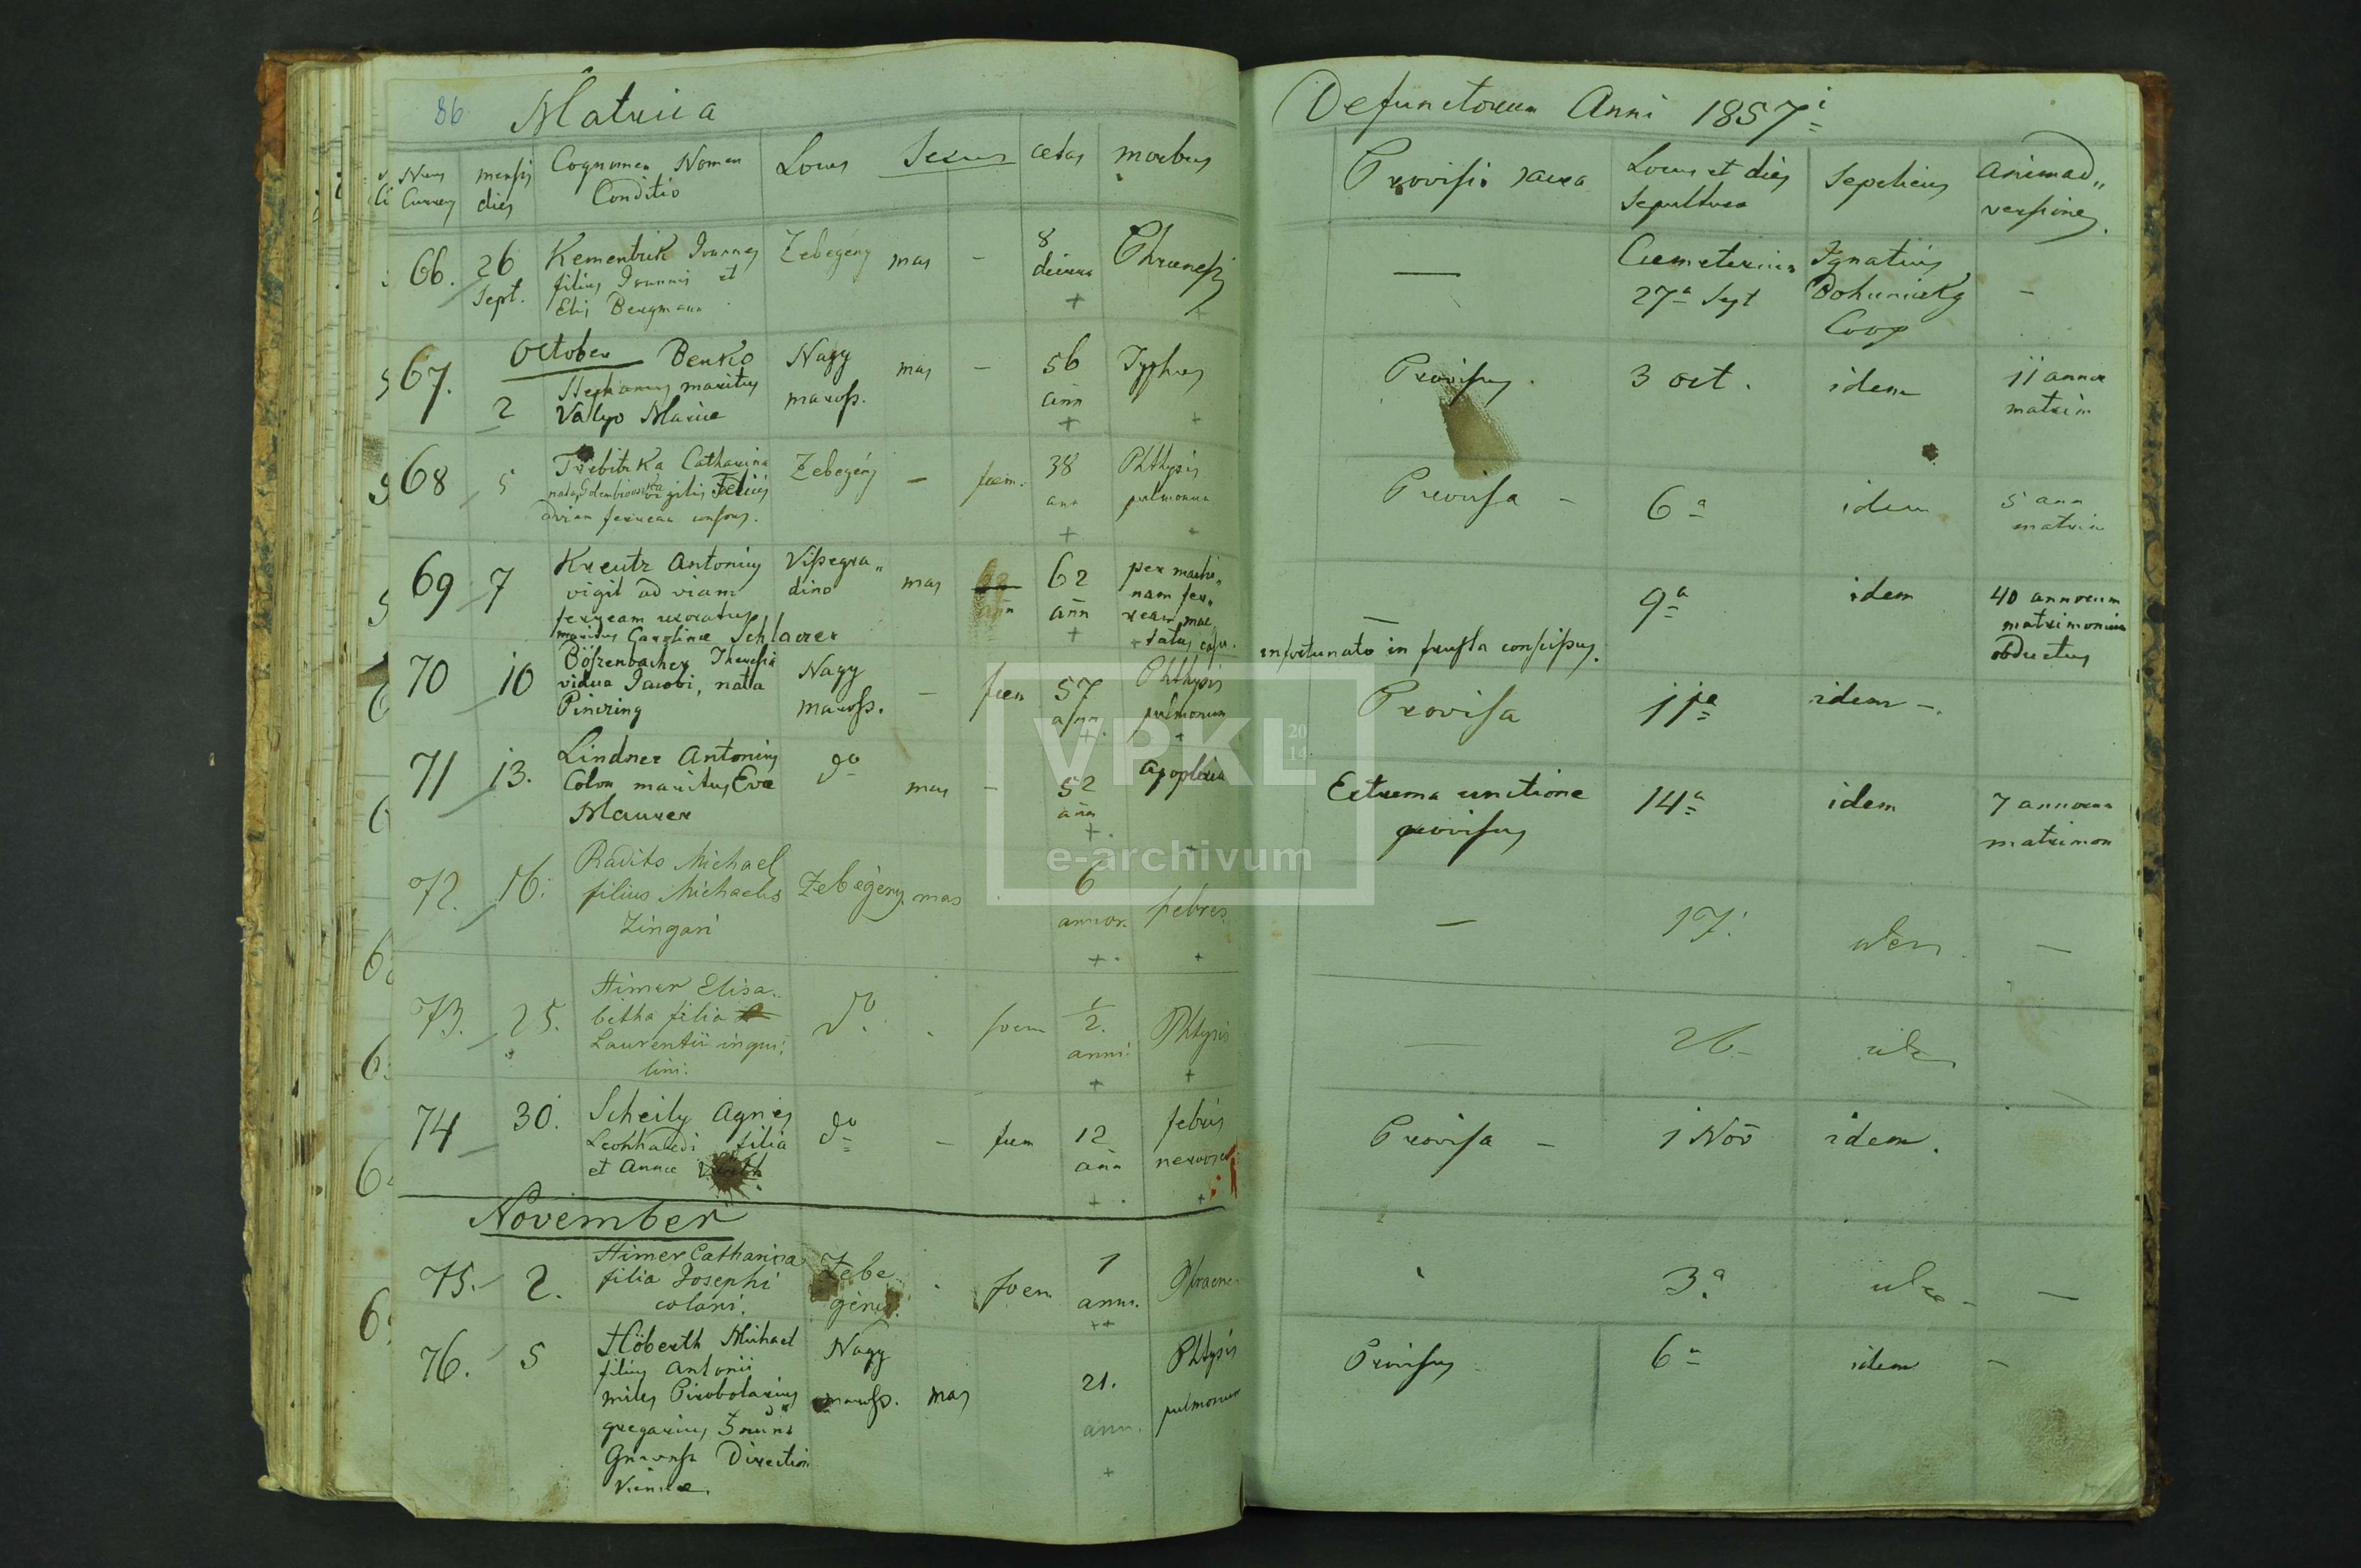 86 Matrica
Nrus Currens
mensis dies
Cognomen Nomen Conditio
Locus
Sexus
aetas
morbus
66.
26 Sept.
Kementrik Joannes
filius Joannis et
Elis Bergmann
Zebegény
mas
-
8
dierum
+
67.
October
2
Benko
Stephanus maritus
Valyo Mariae
Nagy
maross.
mas
-
56
ann
+
Typhus
+
68
5
Trebitska Catharina
vigilis
ad viam ferream consors.
Zebegény
-
foem.
38
ann
+
Phthysis
pulmonum
69
7
Kreutz Antonius
vigil ad viam
ferream uxoratus
maritus Carolinae Schlaerer
Vissegra„
dino
mas
62
ann
+
per machi„
nam fer„
ream mac
tatus casu.
70
10
Theresia
vidua Jacobi, nata
Nagy
maross.
-
foem
57
ann
+
Phthysis
pulmonum
+
71
13.
Lindner Antonius
Colon maritus Evae
Maurer
do
mas
-
52
ann
+
Apoplexia
72.
16.
Radits Michael
filius Michaelis
Zingari
Zebegény
mas
6
annor.
+
febris
+
73.
25.
Himer Elisa„
betha filia
Laurentii inqui„
lini.
do.
foem
1/2.
anni.
+
Phtysis
+
74
30.
Scheily Agnes
Leonhardi filia
et Annae
do
-
foem
12
ann
+
febris
nervosa
+
November
75.
2.
Himer Catharina
filia Josephi
coloni.
Zebe
génii.
foem
1
anni.
++
76.
5
Höberth Michael
filius Antonii
miles Pirobolarius
gregarius
Direction
Viennae.
Nagy
maross.
mas
21.
ann.
+
Phtysis
pulmonum
Defunctorum Anni 1857i
Provisio sacra
Locus et dies
Sepulturae
Sepeliens
Animad„
versiones.
—
Cumeterium
27a Sept
Ignatius
Bohuniczky
Coop
-
Provisus.
3 oct.
idem
11 annor
matrim
Provisa -
6a
idem
5 ann
matrim
—
infortunato in frusta conscissus.
9a
idem
40 annorum
matrimonium
obductus
Provisa
11a
idem -.
Extrema unctione
provisus
14a
idem
7 annorum
matrimon
—
17.
idem
—
—
26-
idem
Provisa -
1 Nov
idem.
3a
idem -
—
Provisus
6a
idem
-
VPKL
20
14
e-archivum